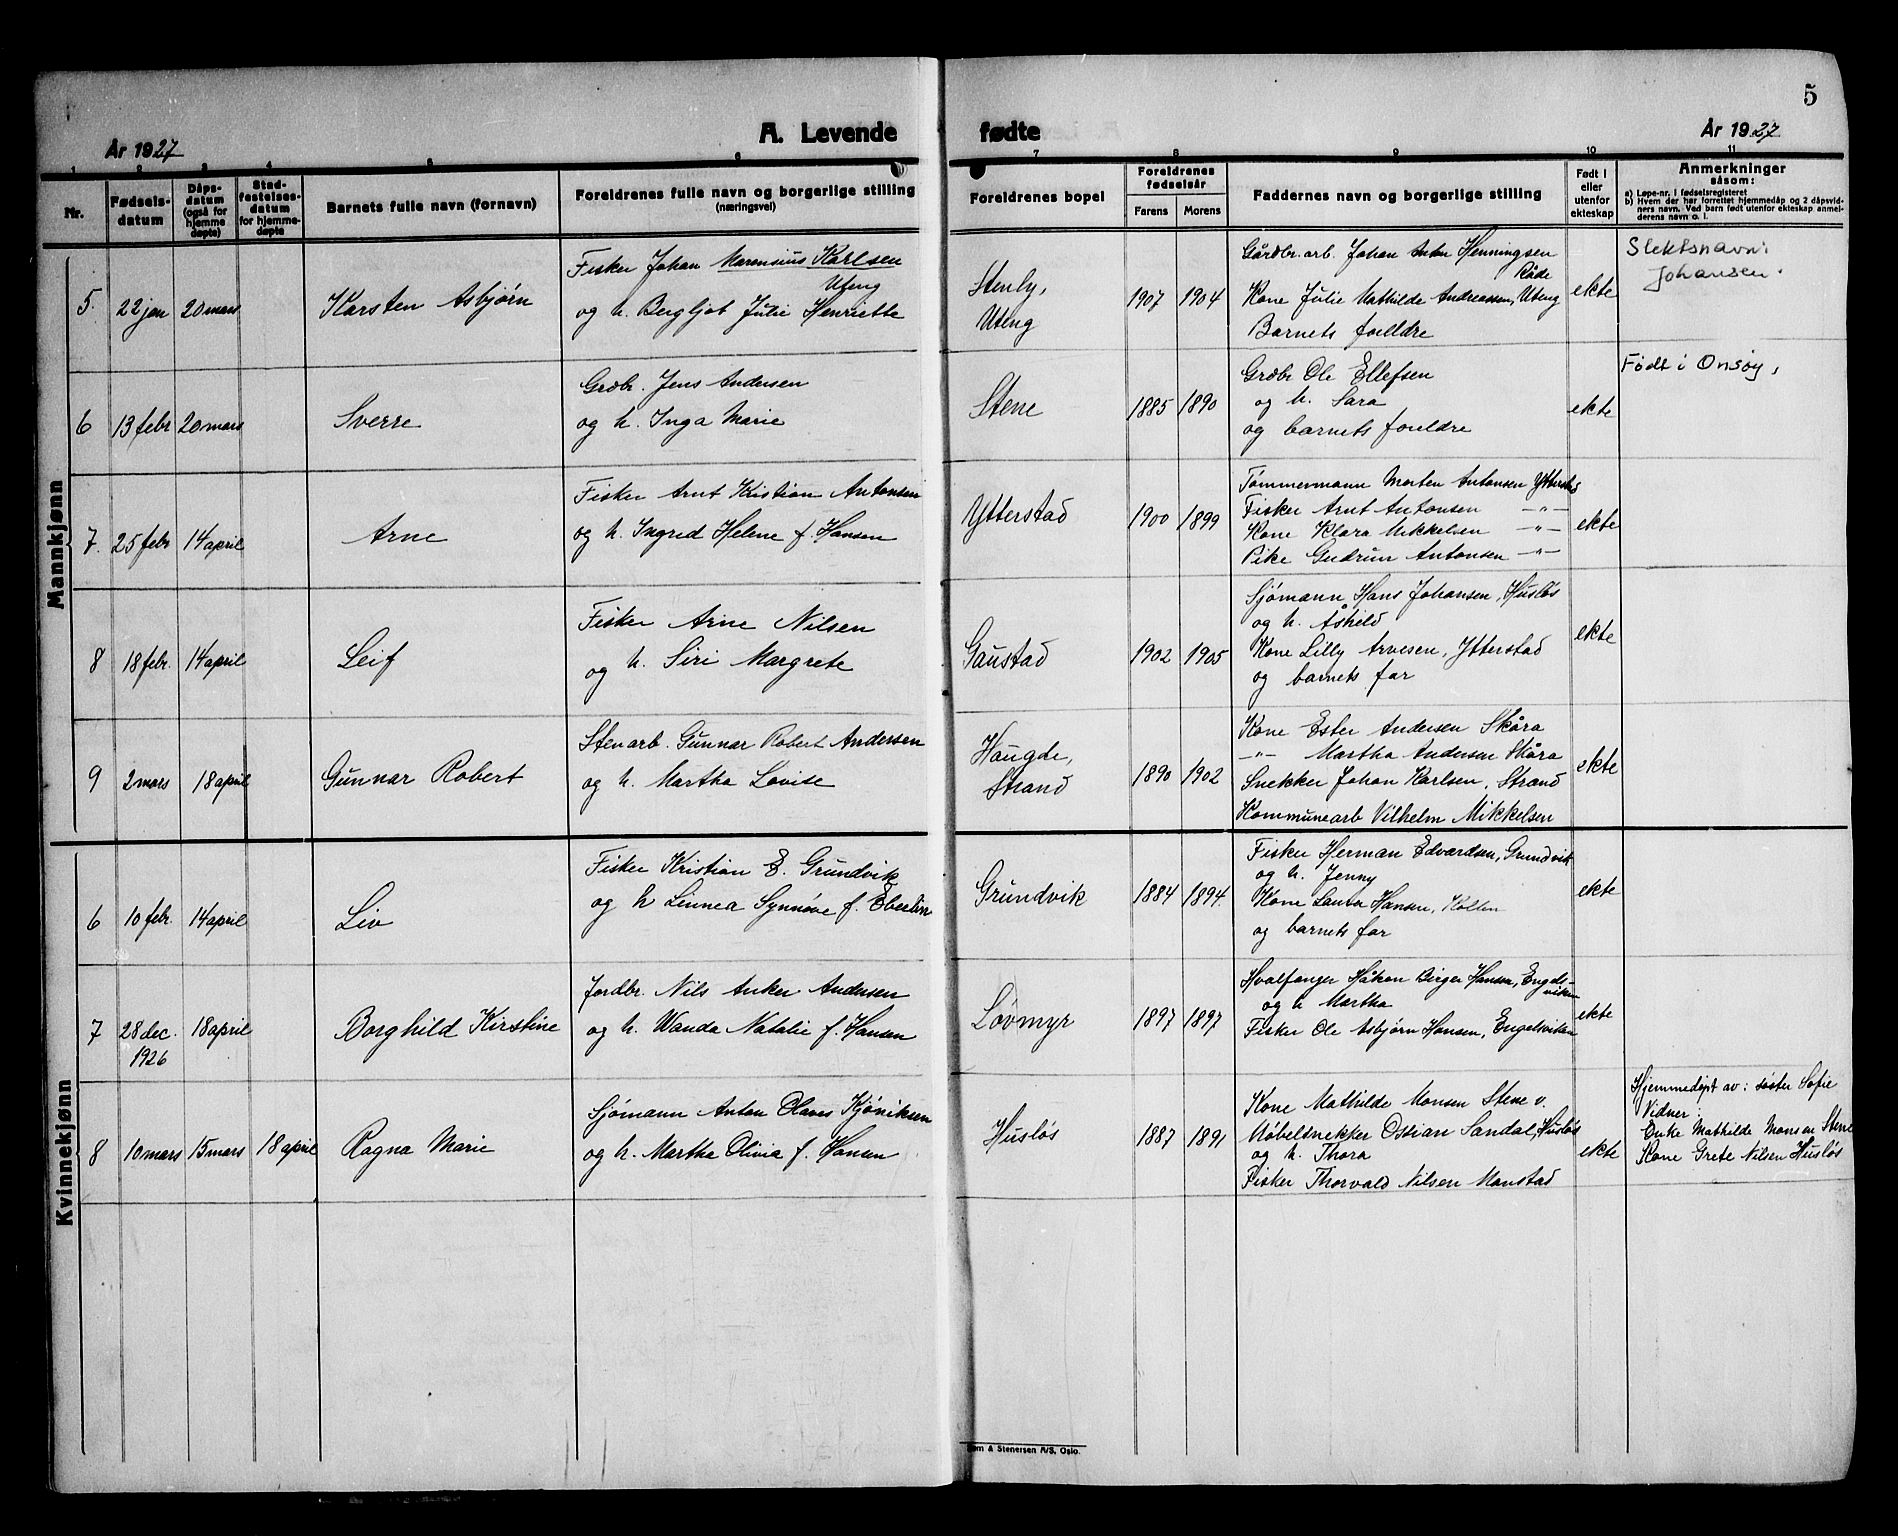 5
År 1927
A. Levende
fødte
År 1927
1 2 3 4 5 6 7 8 9 10 11
Nr.
Fødsels-
datum
Dåps-
datum
(også for
hjemme
døpte)
Stad-
festelses-
datum
for hjemme-
døpte
Barnets fulle navn (fornavn)
Foreldrenes fulle navn og borgerlige stilling
(næringsvei)
Foreldrenes bopel
Foreldrenes
fødselsår
Farens
Morens
Faddernes navn og borgerlige stilling
Født i
eller
utenfor
ekteskap
Anmerkninger
såsom:
a) Løpe-nr. i fødselsregisteret
b) Hvem der har forrettet hjemmedåp og 2 dåpsvid-
ners navn. Ved barn født utenfor ekteskap anmel-
derens navn o. l.
Mannkjønn
5. 22 jan 20 mars
Karsten Asbjørn
Fisker Johan Marensius Karlsen
Uteng
og h. Bergljot Julie Henriette
Stenly,
Uteng
1907 1904
Gårdbr.arb. Johan Anton Henningsen
Råde
Kone Julie Mathilde Andreassen, Uteng
Barnets foreldre
ekte
Slektsnavn:
Johansen.
6 13 febr 20 mars
Sverre
Grdbr. Jens Andersen
og h. Inga Marie
Stene
1885 1890
Grdbr Ole Ellefsen
og h. Sara
og barnets foreldre
ekte
Født i Onsøy,
7. 25 febr 14 april
Arne
Fisker Arnt Kristian Antonsen
og h. Ingrid Helene f. Hansen
Ytterstad
1900 1899
Tømmermann Morten Antonsen Ytterstad
Fisker Arnt Antonsen —"—
Kone Klara Mikkelsen —"—
Pike Gudrun Antonsen —"—
ekte
8 18 febr. 14 april
Leif
Fisker Arne Nilsen
og h. Siri Margrete
Gaustad
1902 1905
Sjømann Hans Johansen, Husløs
og h. Åshild
Kone Lilly Arvesen, Ytterstad
og barnets far
ekte
9 2 mars 18 april
Gunnar Robert
Stenarb. Gunnar Robert Andersen
og h. Martha Lovise
Haugde,
Strand
1890 1902
Kone Ester Andersen Skåra
—"— Martha Andersen Skåra
Snekker Johan Karlsen, Strand
Kommunearb Vilhelm Mikkelsen
ekte
Kvinnekjønn
6 10 febr. 14 april
Liv
Fisker Kristian E. Grundvik
og h Linnea Synnøve f. Eberlin
Grundvik
1884 1894.
Fisker Herman Edvardsen, Grundvik
og h. Jenny
Kone Laura Hansen, Kollen
og barnets far
ekte
7 28 dec. 18 april
1926
Borghild Kirstine
Jordbr. Nils Anker Andersen
og h. Wanda Natalie f. Hansen
Løvmyr
1897 1897
Hvalfanger Håkon Birger Hansen, Engel-
viken
og h Martha
Fisker Ole Asbjørn Hansen, Engelviken
ekte
8 10 mars 15 mars 18 april
Ragna Marie
Sjømann Anton Olaves Kjøniksen
og h. Martha Olivia f. Hansen
Husløs
1887 1891
Kone Mathilde Monsen Stene v.
Møbelsnekker Ossian Sandal, Husløs
og h. Thora
Fisker Thorvald Nilsen Monstad
ekte
Hjemmedøpt av: søster Sofie
Vidner:
Enke Mathilde Monsen Stene
Kone Grete Nilsen Husløs
& Stenersen A/S, Oslo.